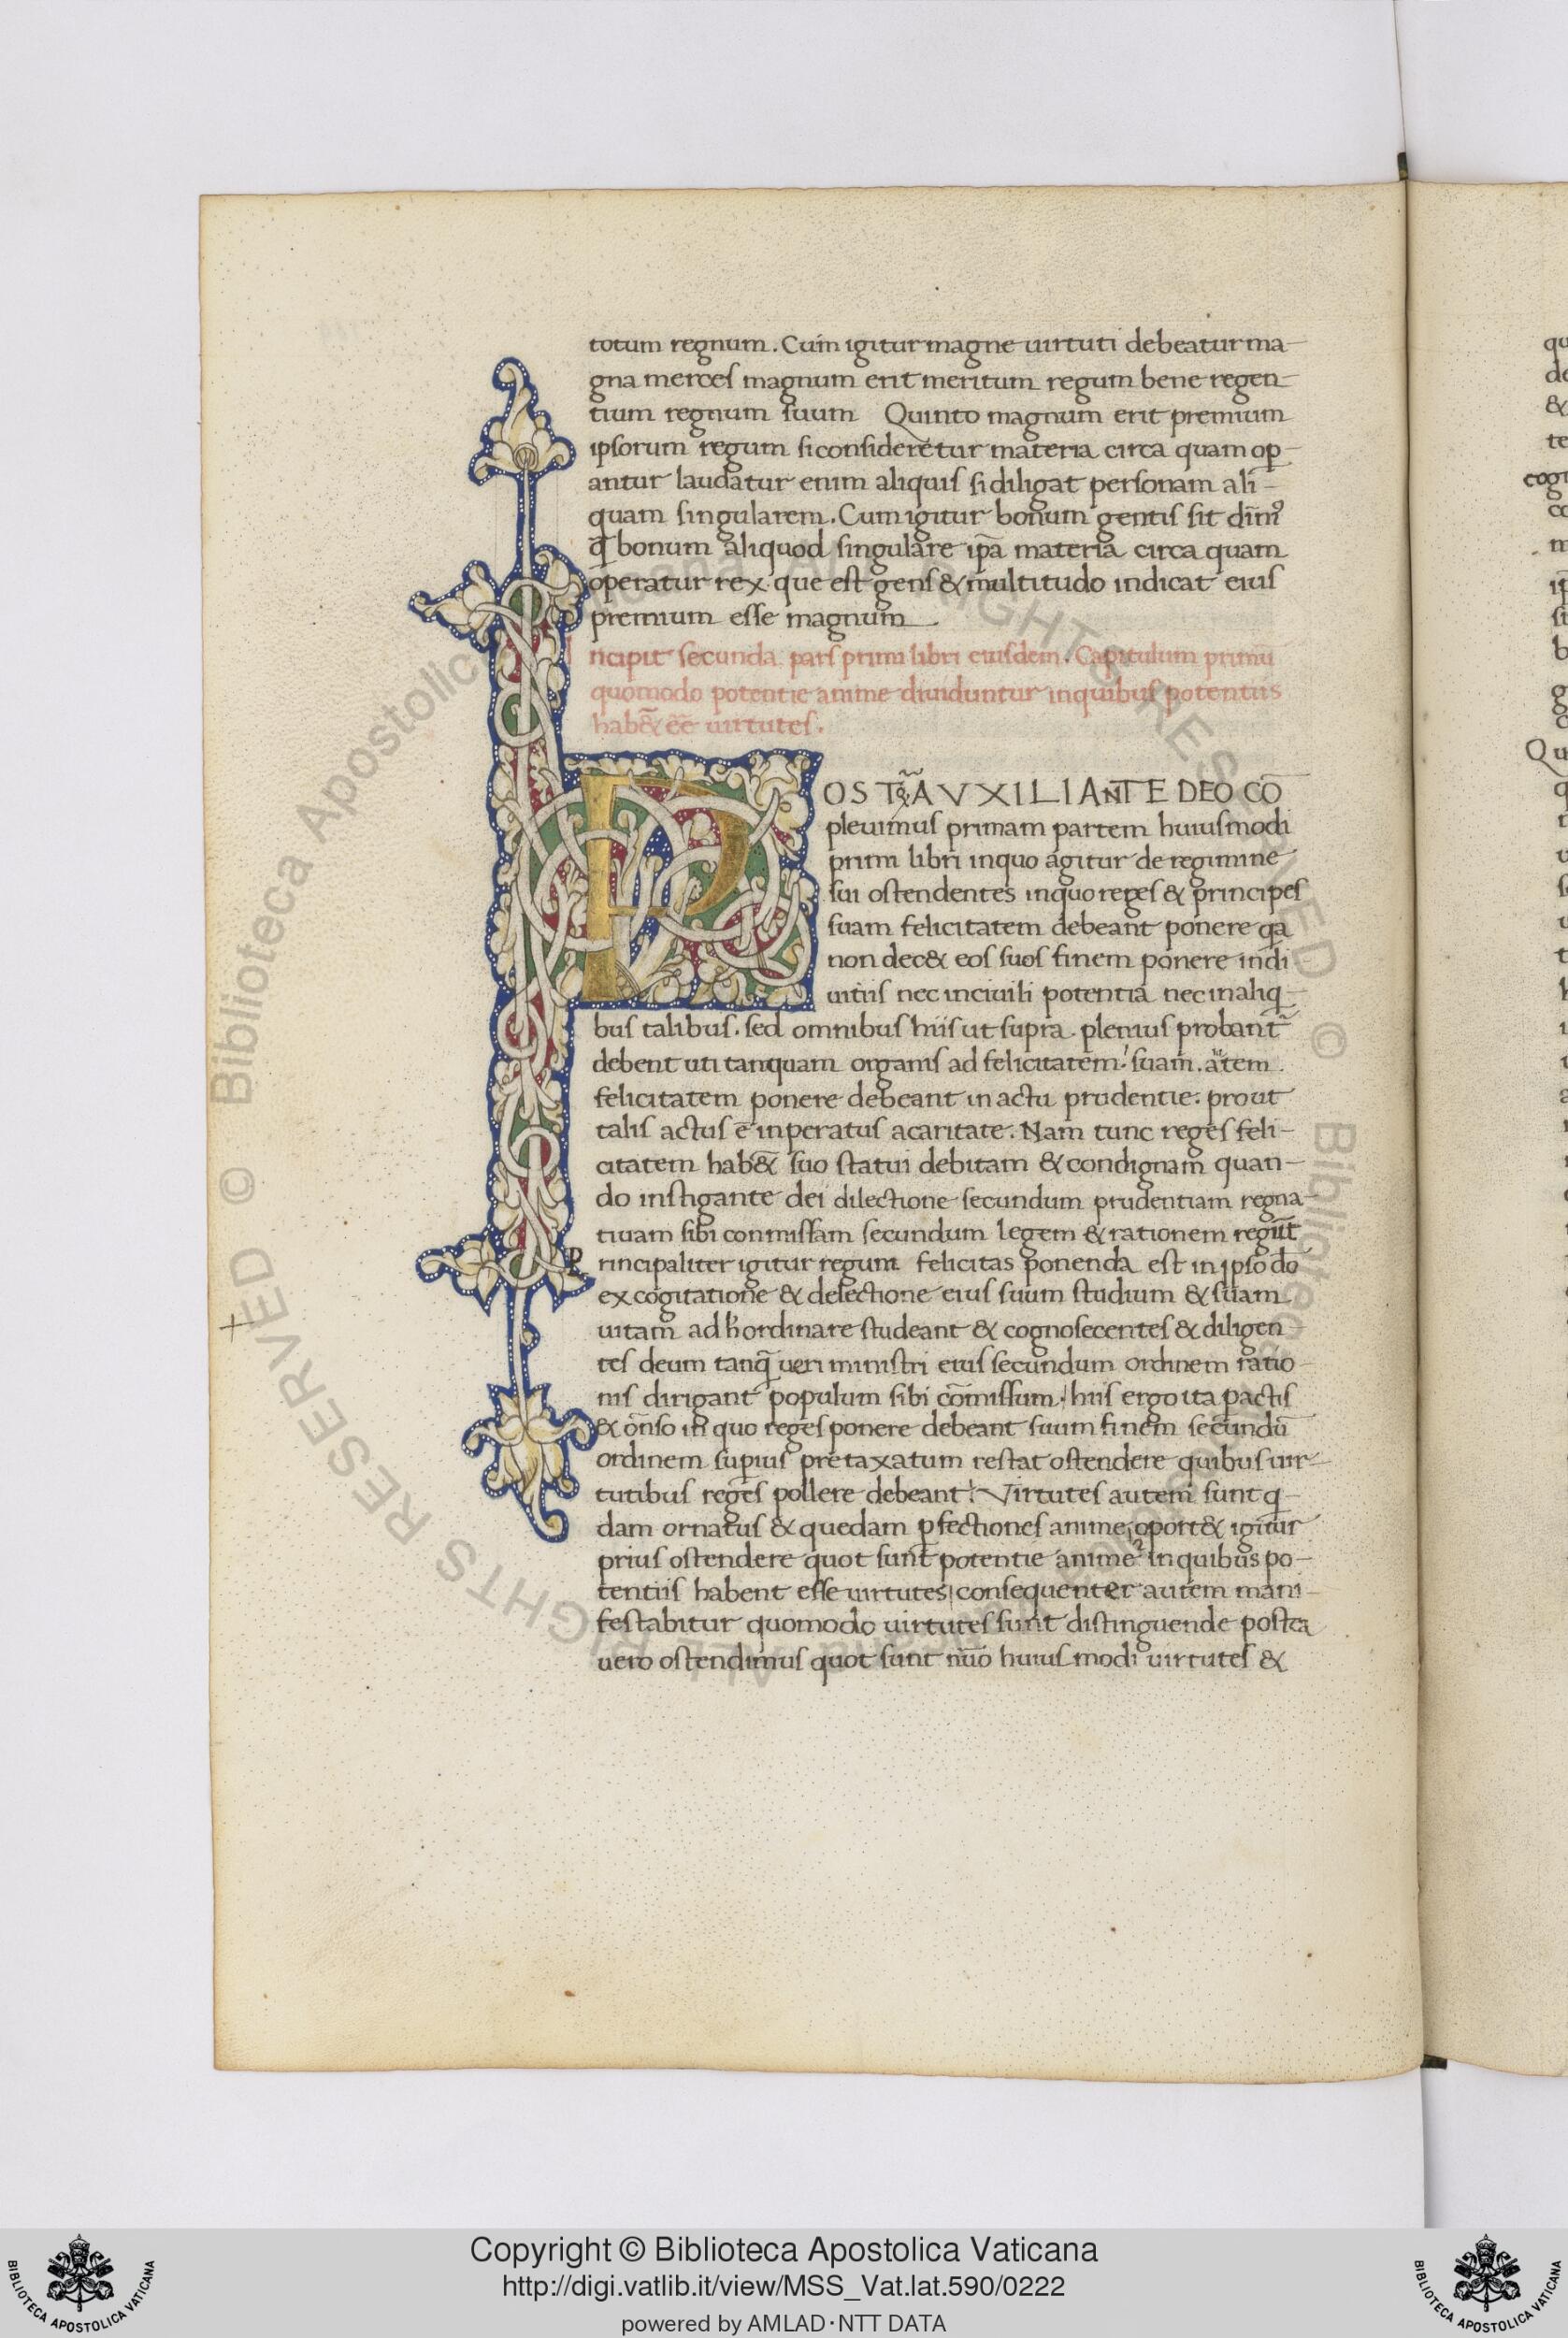 totum regnum. Cum igitur magne uirtuti debeatur ma-
gna merces magnum erit meritum regum bene regen-
tium regnum suum Quinto magnum erit premium
ipsorum regum si consideretur materia circa quam op̄-
antur laudatur enim aliquis si diligat personam ali-
quam singularem. Cum igitur bonum gentis sit
bonum aliquod singulare ip̄a materia circa quam
operatur rex que est gens & multitudo indicat eius
premium esse magnum.
Incipit secunda pars primi libri eiusdem. Capitulum primū
quomodo potentie anime diuiduntur in quibus potentiis
hab&̄ eē uirtutes.
POS TQ̄A AVXILIANTE DEO CŌ
pleuimus primam partem huiusmodi
primi libri in quo agitur de regimine
sui ostendentes in quo reges & principes
suam felicitatem debeant ponere qa
non dec& eos suos finem ponere in di
uitiis nec in ciuili potentia nec in aliq̄-
bus talibus. sed omnibus hiis ut supra plenius probant̄
debent uti tanquam organis ad felicitatem suam. aūtem
felicitatem ponere debeant in actu prudentie. prout
talis actus ē inperatus a caritate. Nam tunc reges feli-
citatem hab&̄ suo statui debitam & condignam quan-
do instigante dei dilectione secundum prudentiam regna-
tiuam sibi conmissam secundum legem & rationem regūt
Principaliter igitur regum felicitas ponenda est in ipso dō
ex cogitatione & delectione eius suum studium & suam
uitam ad h̄ ordinare studeant & cognosecentes & diligen
tes deum tanq̄ ueri ministri eius secundum ordinem ratio-
nis dirigant populum sibi cōmissum. hiis ergo ita pactis
& ōnso in quo reges ponere debeant suum finem secundū
ordinem superius pretaxatum restat ostendere quibus uir-
tutibus reges pollere debeant. Virtutes autem sunt q̄-
dam ornatus & quedam ꝑfectiones anime oport& igitur
prius ostendere quot sunt potentie anime in quibus po-
tentiis habent esse uirtutes consequenter autem mani-
festabitur quomodo uirtutes sunt distinguende postea
uero ostendimus quot sunt nūo huiusmodi uirtutes &
Copyright © Biblioteca Apostolica Vaticana
http://digi.vatlib.it/view/MSS_Vat.lat.590/0222
powered by AMLAD·NTT DATA
BIBLIOTECA APOSTOLICA VATICANA
BIBLIOTECA APOSTOLICA VATICANA